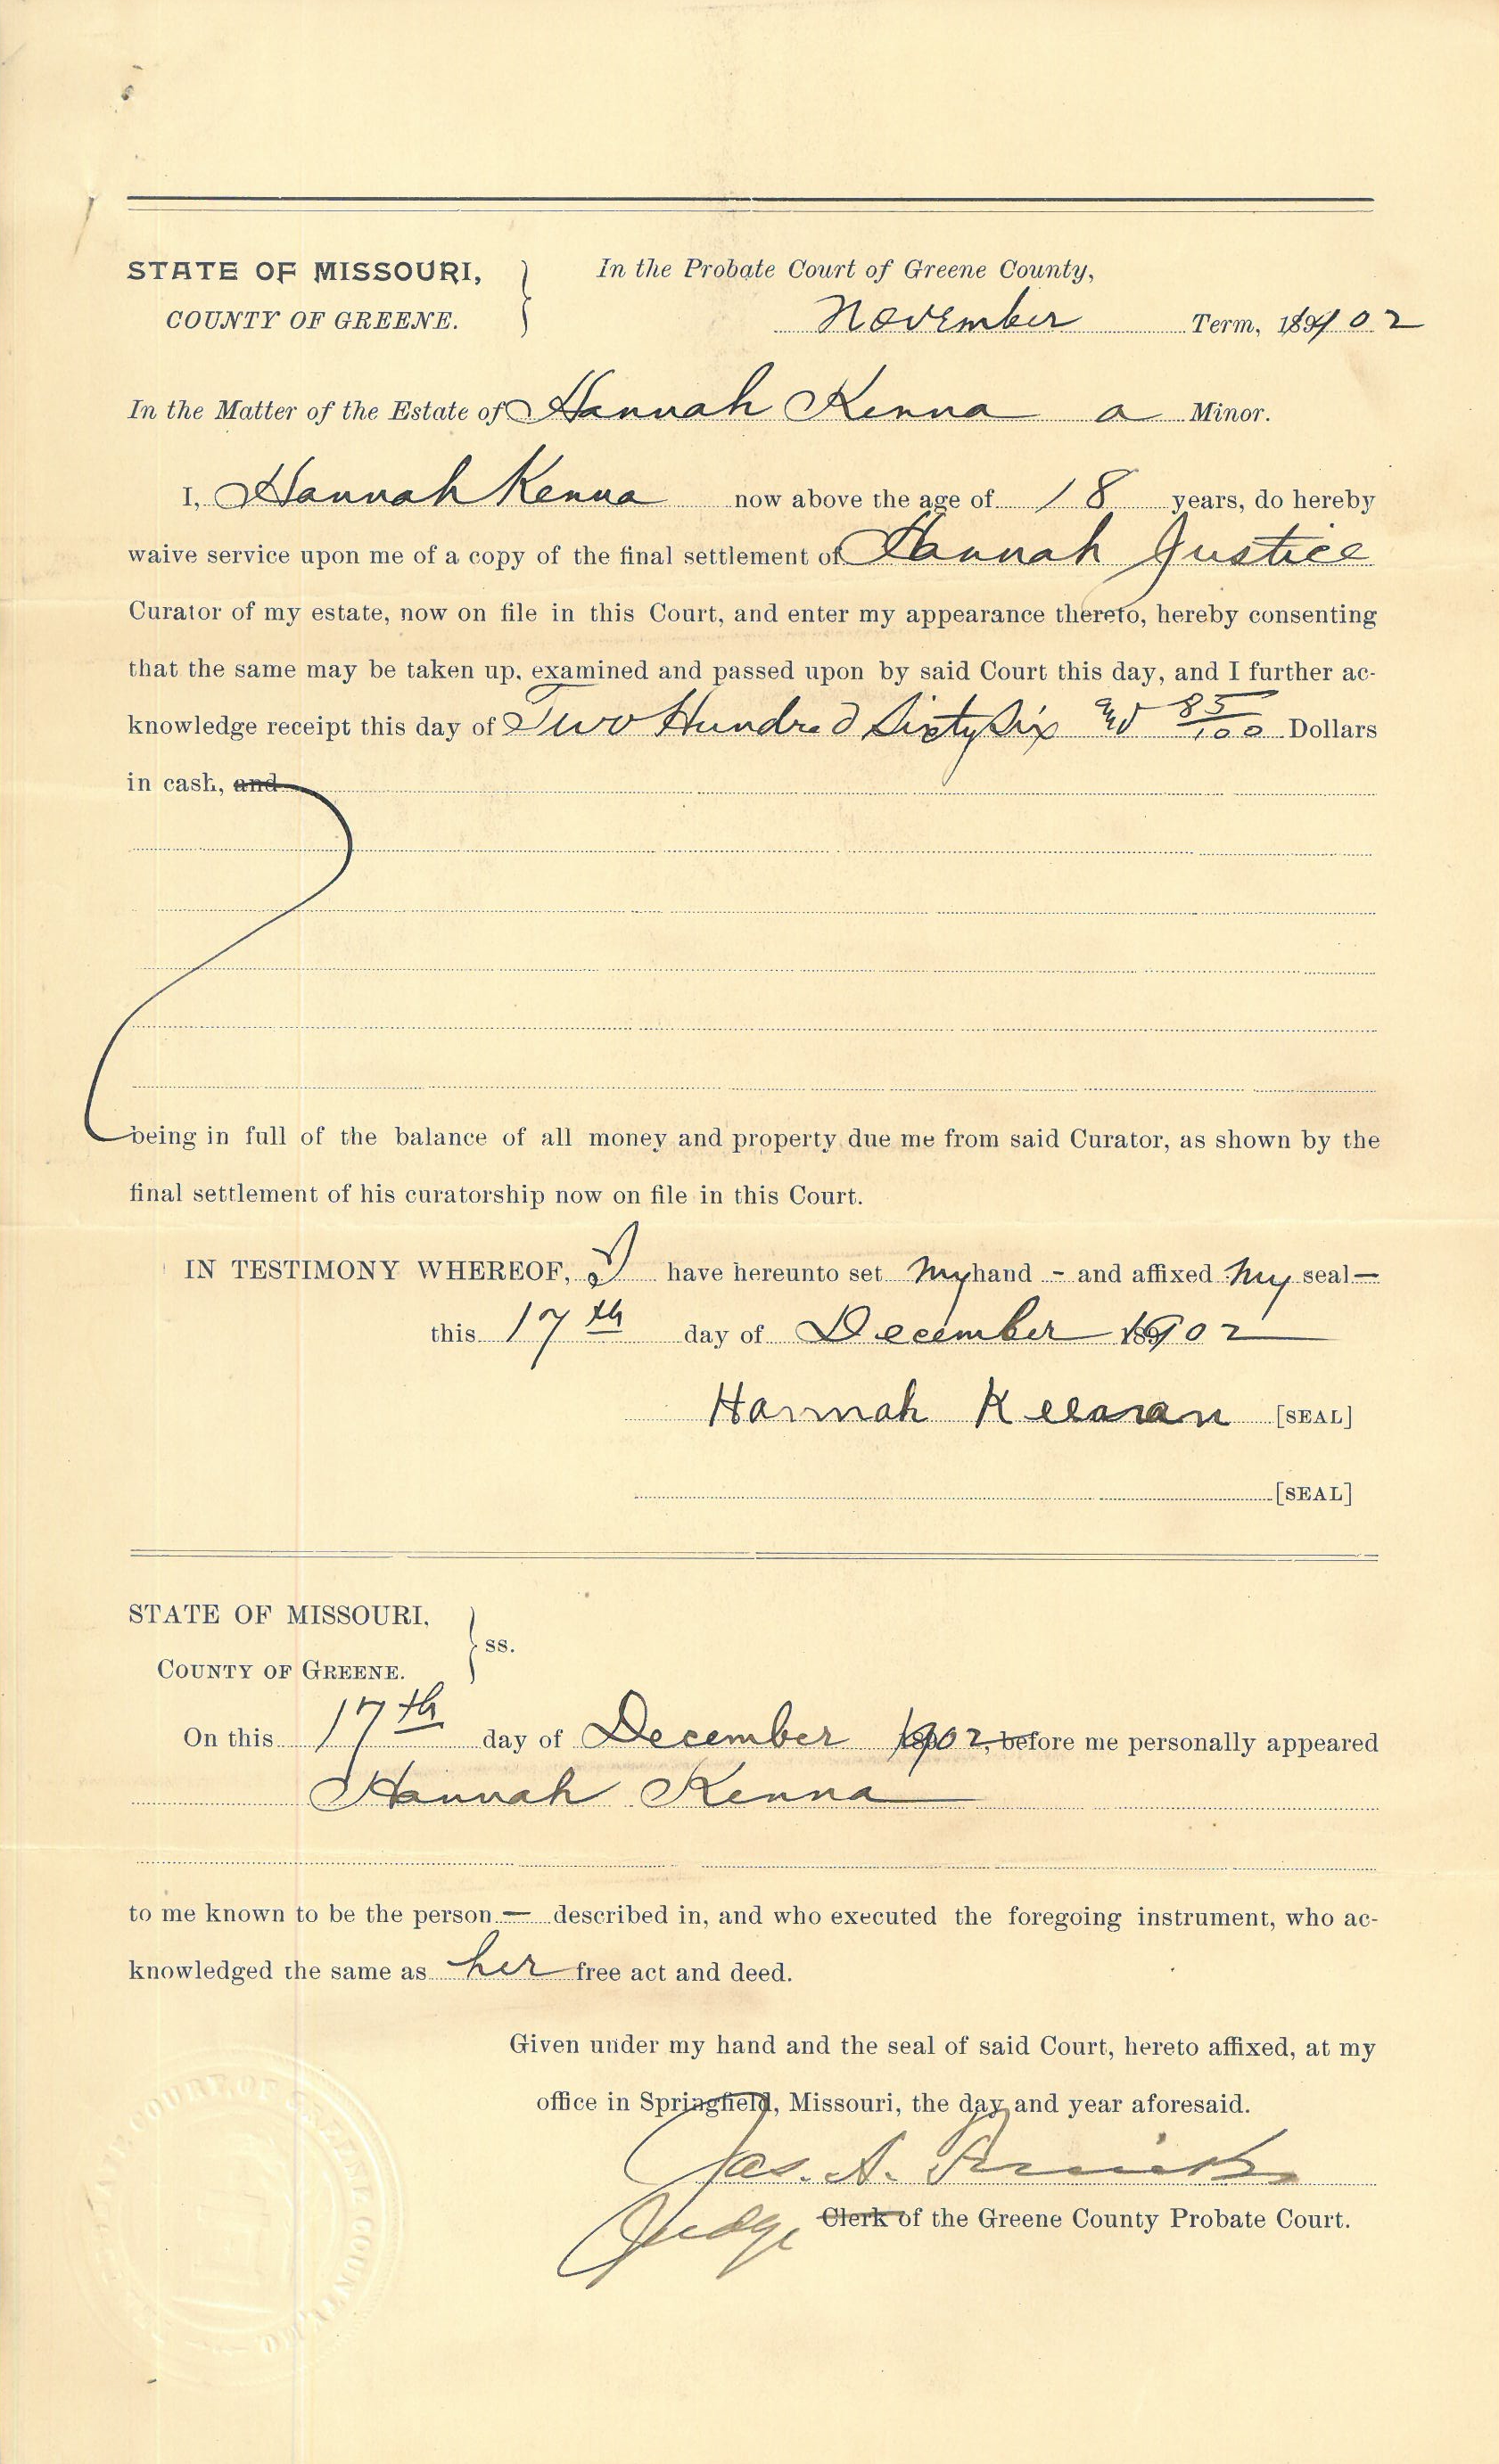 STATE OF MISSOURI,
COUNTY OF GREENE.
In the Probate Court of Greene County,
November Term, 1902
In the Matter of the Estate of Hannah Kenna a Minor.
I, Hannah Kenna now above the age of 18 years, do hereby
waive service upon me of a copy of the final settlement of Hannah Justice
Curator of my estate, now on file in this Court, and enter my appearance thereto, hereby consenting
that the same may be taken up, examined and passed upon by said Court this day, and I further ac-
knowledge receipt this day of Two Hundred Sixty Six and 85/100 Dollars
in cash, and
being in full of the balance of all money and property due me from said Curator, as shown by the
final settlement of his curatorship now on file in this Court.
IN TESTIMONY WHEREOF, I have hereunto set my hand - and affixed my seal —
this 17th day of December 1902
Hannah [SEAL]
[SEAL]
STATE OF MISSOURI,
COUNTY OF GREENE.
ss.
On this 17th day of December 1902, before me personally appeared
Hannah Kenna
to me known to be the person — described in, and who executed the foregoing instrument, who ac-
knowledged the same as her free act and deed.
Given under my hand and the seal of said Court, hereto affixed, at my
office in Springfield, Missouri, the day and year aforesaid.
Jas. A.
Judge Clerk of the Greene County Probate Court.
COURT OF GREENE COUNTY MO